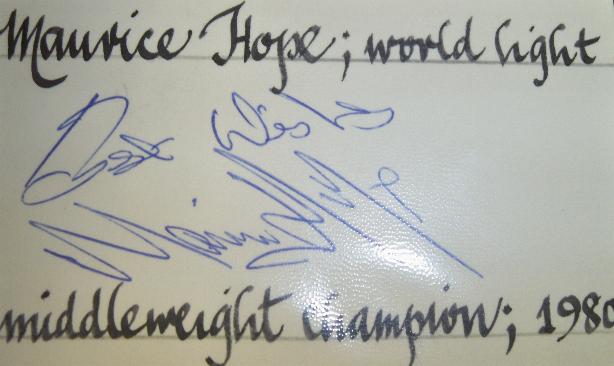 Maurice Hope; world light
Best Wishes
Maurice Hope
middleweight champion; 1980